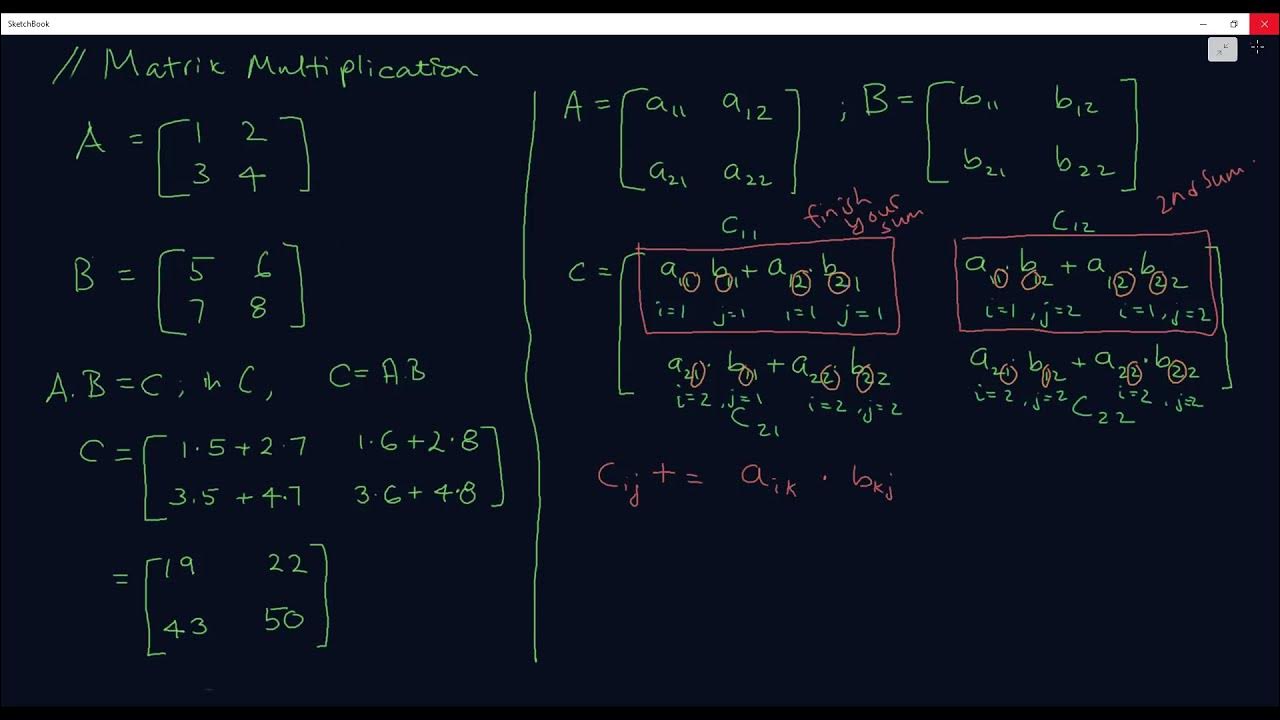 SketchBook
// Matrix Multiplication
A = [1 2
3 4]
B = [5 6
7 8]
A.B = C ; in C, C = A.B
C = [1·5+2·7 1·6+2·8
3.5+4.7 3·6+4·8]
= [19 22
43 50]
A = [a11 a12
a21 a22]
; B = [b11 b12
b21 b22]
C11
finish
your
sum
C12
2nd sum.
C = [a11 b11 + a12. b21 a11. b12 + a12. b22
i=1 j=1 i=1 j=1 i=1, j=2 i=1, j=2
a21. b11 + a22. b22 a21. b12 + a22. b22]
i=2, j=1 i=2, j=2 i=2, j=2 i=2, j=2
C21 C22
Cij += aik . bkj